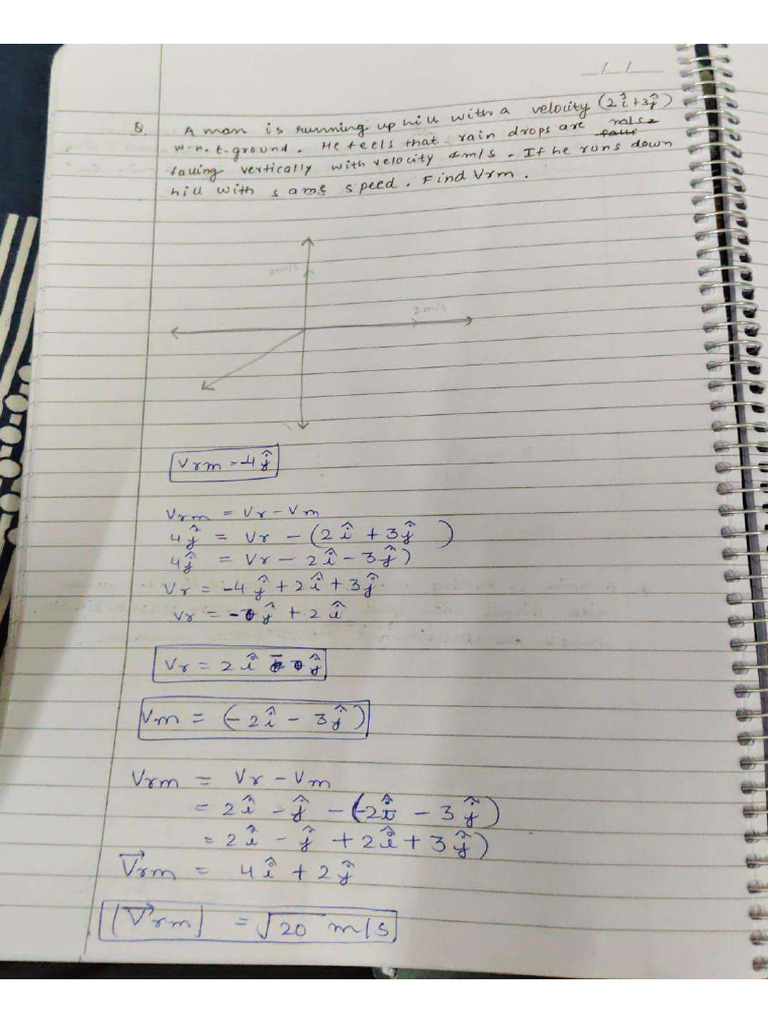 _/_/_
Q. A man is running up hill with a velocity (2î+3ĵ)
w.r.t. ground. He feels that rain drops are
falling vertically with velocity 4m/s. If he runs down
hill with same speed. Find Vrm.
2m/s
Vrm = -4ĵ
Vrm = Vr - Vm
4ĵ = Vr - (2î + 3ĵ )
4ĵ = Vr - 2î - 3ĵ)
Vr = -4ĵ + 2î + 3ĵ
Vr = - ĵ + 2î
Vr = 2î ĵ
Vm = (-2î - 3ĵ)
Vrm = Vr - Vm
= 2î - ĵ - (-2î - 3ĵ)
= 2î - ĵ + 2î + 3ĵ)
V⃗rm = 4î + 2ĵ
|V⃗rm| = √20 m/s